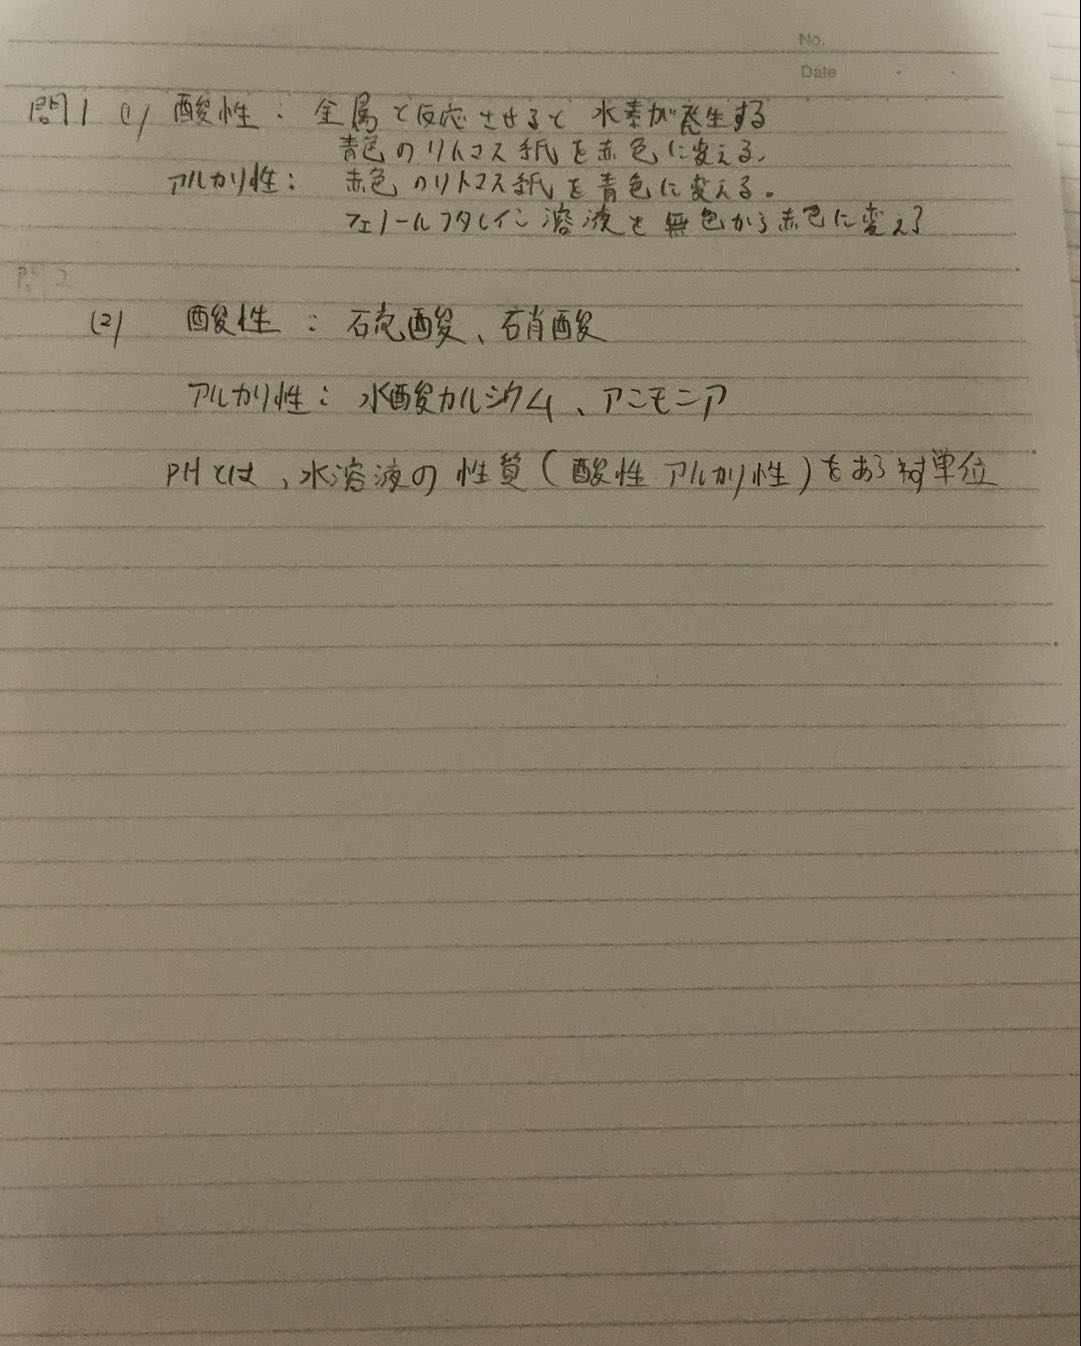 No.
Date
問1 (1) 酸性: 金属と反応させると 水素が発生する
青色のリトマス紙を赤色に変える.
アルカリ性: 赤色のリトマス紙を青色に変える。
フェノールフタレイン溶液を無色から赤色に変える
問2
(2) 酸性: 硫酸、硝酸
アルカリ性: 水酸カルシウム、アニモニア
PHとは、水溶液の性質(酸性 アルカリ性)を
単位